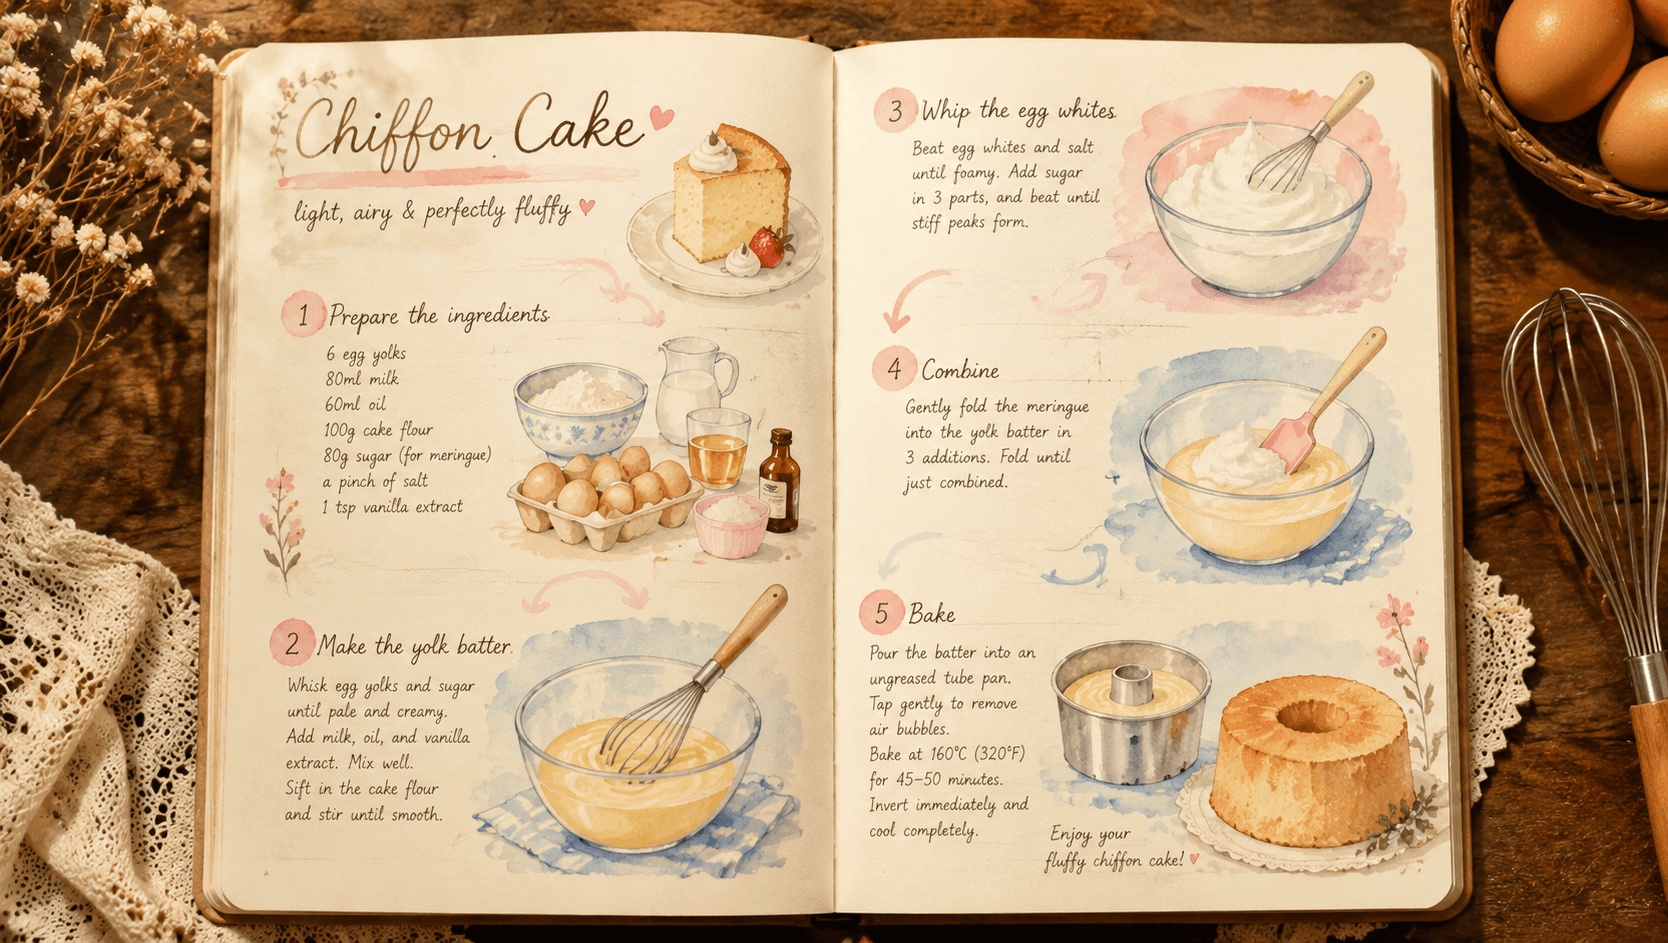 Chiffon Cake
light, airy & perfectly fluffy
1 Prepare the ingredients
6 egg yolks
80ml milk
60ml oil
100g cake flour
80g sugar (for meringue)
a pinch of salt
1 tsp vanilla extract
2 Make the yolk batter.
Whisk egg yolks and sugar
until pale and creamy.
Add milk, oil, and vanilla
extract. Mix well.
Sift in the cake flour
and stir until smooth.
3 Whip the egg whites
Beat egg whites and salt
until foamy. Add sugar
in 3 parts, and beat until
stiff peaks form.
4 Combine
Gently fold the meringue
into the yolk batter in
3 additions. Fold until
just combined.
5 Bake
Pour the batter into an
ungreased tube pan.
Tap gently to remove
air bubbles.
Bake at 160°C (320°F)
for 45–50 minutes.
Invert immediately and
cool completely.
Enjoy your
fluffy chiffon cake!